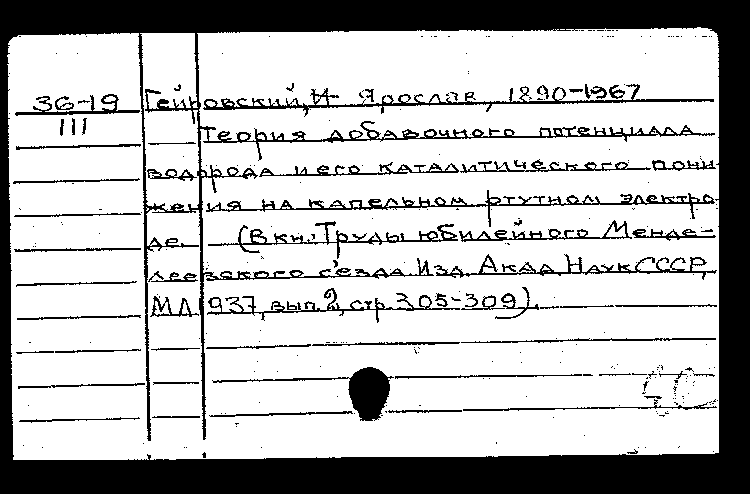 36-19 Гейровский, И Ярослав, 1890-1967
III
Теория добавочного потенциала
водорода и его каталитического пони
жения на капельном ртутном электро
де. (В кн.: Труды юбилейного Менде-
леевского с'езда Изд. Акад Наук СССР,
МЛ 1937, вып. 2, стр. 305-309).